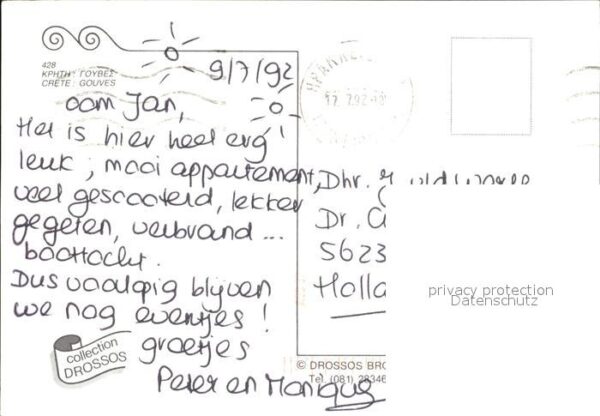 428
ΚΡΗΤΗ: ΓΟΥΒΕΣ
CRETE: GOUVES
9/7/92
oom Jan,
Het is hier heel erg
leuk, mooi appartement,
veel gescooterd, lekker
gegeten, verbrand...
boottocht.
Dus voorlopig blijven
we nog eventjes!
groetjes
Peter en Monique
Dhr.
Dr.
5623
Holla
17. 7. 92
collection
DROSSOS
© DROSSOS BRO
Tel. (081) 28346
privacy protection
Datenschutz